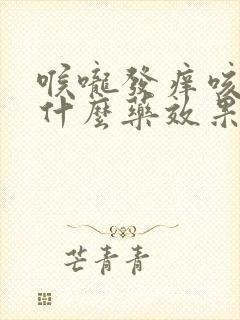 喉嚨發痒咳
什麼藥效果
芒青青